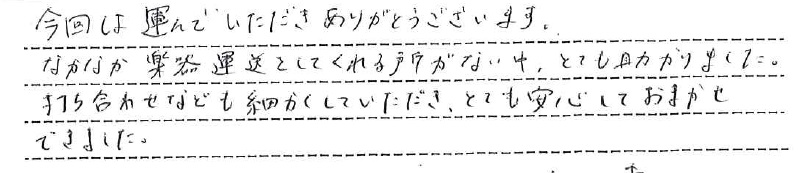 今回は運んでいただきありがとうございます。
なかなか楽器運送としてくれる所がない中、とても助かりました。
打ち合わせなども細かくしていただき、とても安心しておまかせ
できました。